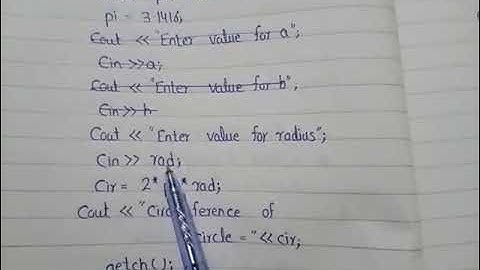 pi = 3.1416;
Cout << "Enter value for a";
Cin >> a;
Cout << "Enter value for b",
Cin >> h
Cout << "Enter value for radius";
Cin >> rad;
Cir = 2* * rad;
Cout << "Circ ference of
circle = " << cir;
getch();